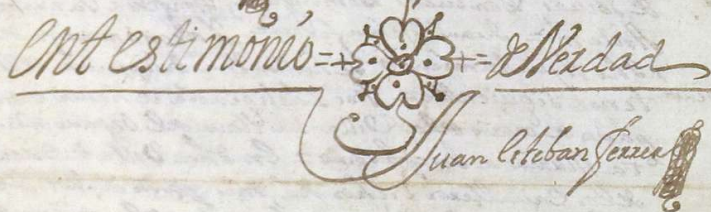 en testimonio =+ += de Verdad
Juan esteban ferrer